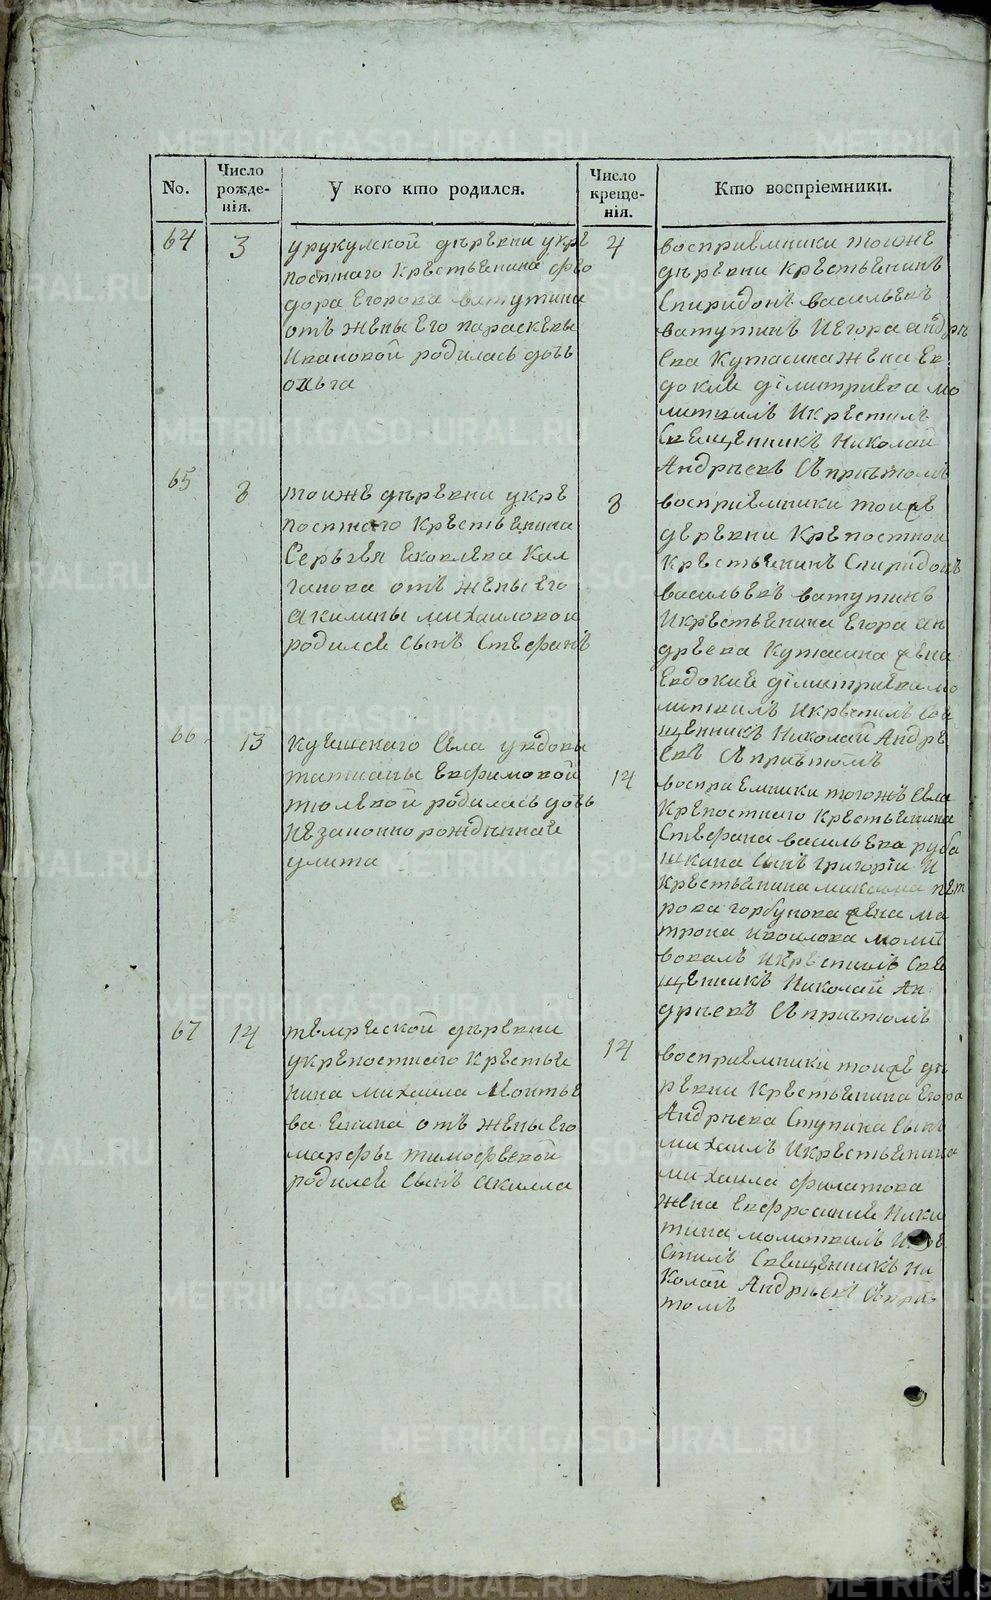 No.
Число рожде-
нія.
У кого кто родился.
Число креще-
нія.
Кто воспріемники.
64
3
урукулской дѣревни укре
постнаго крестьенина фео
дора Егорова ватутина
отъ жены Его параскевы
Ивановой родилась дочь
ольга
4
восприемники тоиже
дѣревни крестьенинъ
Спиридонъ васильевъ
ватутинъ ИЕгора андрѣ
ева Кутасина жена Ев
докие дімитриева мо
литвилъ Икрестилъ
Свещенникъ Николай
Андрѣевъ Съпричтомъ
65
8
тоиже дѣревни укре
постнаго крестьенина
Сергѣя Ековлева Кал
ганова отъ жены Его
акилины михаиловои
родилсе сынъ Стефанъ
8
восприемники тоиже
деревни Крепостнои
крестьенинъ Спиридонъ
васильевъ ватутинъ
Икрестьенина Егора ан
дреева Кутасина жена
Евдокие дімитриева мо
литвилъ Икрестилъ Све
щенникъ Николай Андре
евъ Съ причтомъ
66
13
куешскаго Села увдовы
татианы Евфимовой
тюлевой родилась дочь
Незаконно рожденнае
улита
14
восприемники тогожъ Села
крепостнаго крестьенина
Стефана васильева руба
шкина Сынъ григоріи И
крестьенина максима пет
рова горбунова жена ма
трона Иваилова молит
вовалъ Икрестилъ Све
щенникъ Николай Ан
дрѣевъ Съ причтомъ
67
14
темреской дѣревни
укрепостнаго крестье
нина михаила
ва отъ жены Его
марфы тимофѣевой
родилсе Сынъ акилла
14
восприемники тоиже дѣ
ревни крестьенина Егора
Андрѣева Ступина Сынъ
михаилъ Икрестьенина
михаила филатова
жена Евфросиние Ники
тина молитвилъ Икре
стилъ Свещенникъ Ни
колай Андрѣевъ Съприч
томъ
METRIKI.GASO-URAL.RU